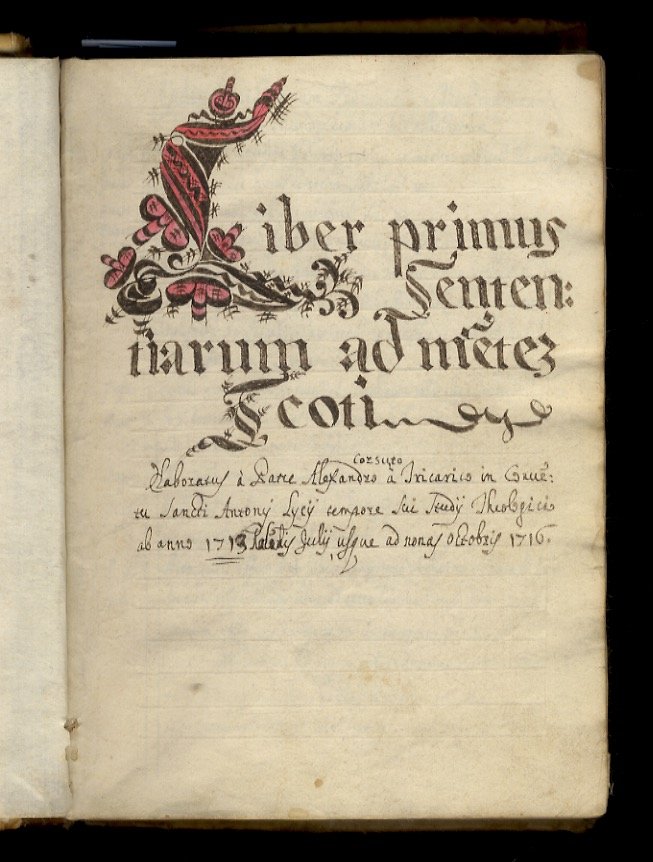 Liber primus
Senten:
tiarum ad mẽtez
Scoti
Corsuto
Elaboratus à Patre Alexandro à Tricarico in Convẽ:
tu Sancti Antonij Lycij tempore sui Studij Theologici
ab anno 1713 Kalẽdis Julij usque ad nonas octobris 1716.